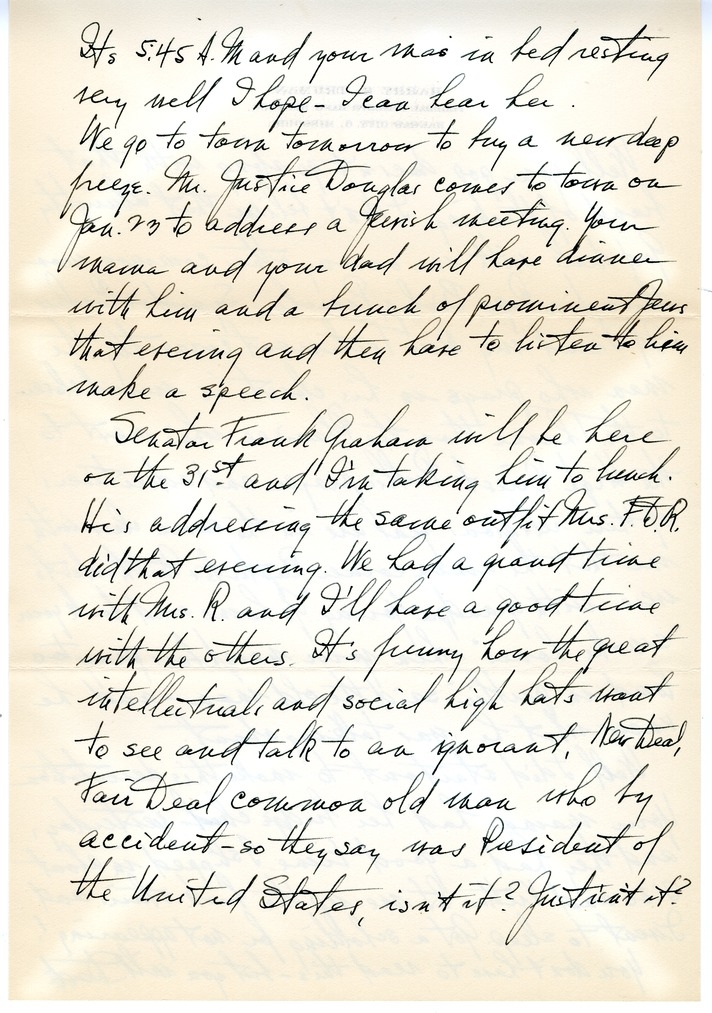 Its 5:45 A.M and your ma is in bed resting
very well I hope - I can hear her.
We go to town tomorrow to buy a new deep
freeze. Mr. Justice Douglas comes to town on
Jan. 23 to address a Jewish meeting. Your
mama and your dad will have dinner
with him and a bunch of prominent Jews
that evening and then have to listen to him
make a speech.
Senator Frank Graham will be here
on the 31st and I'm taking him to lunch.
He's addressing the same outfit Mrs. F.D.R.
did that evening. We had a grand time
with Mrs. R. and I'll have a good time
with the others. It's funny how the great
intellectuals and social high hats want
to see and talk to an ignorant, New Deal,
Fair Deal common old man who by
accident - so they say was President of
the United States, isn't it? Just isn't it?